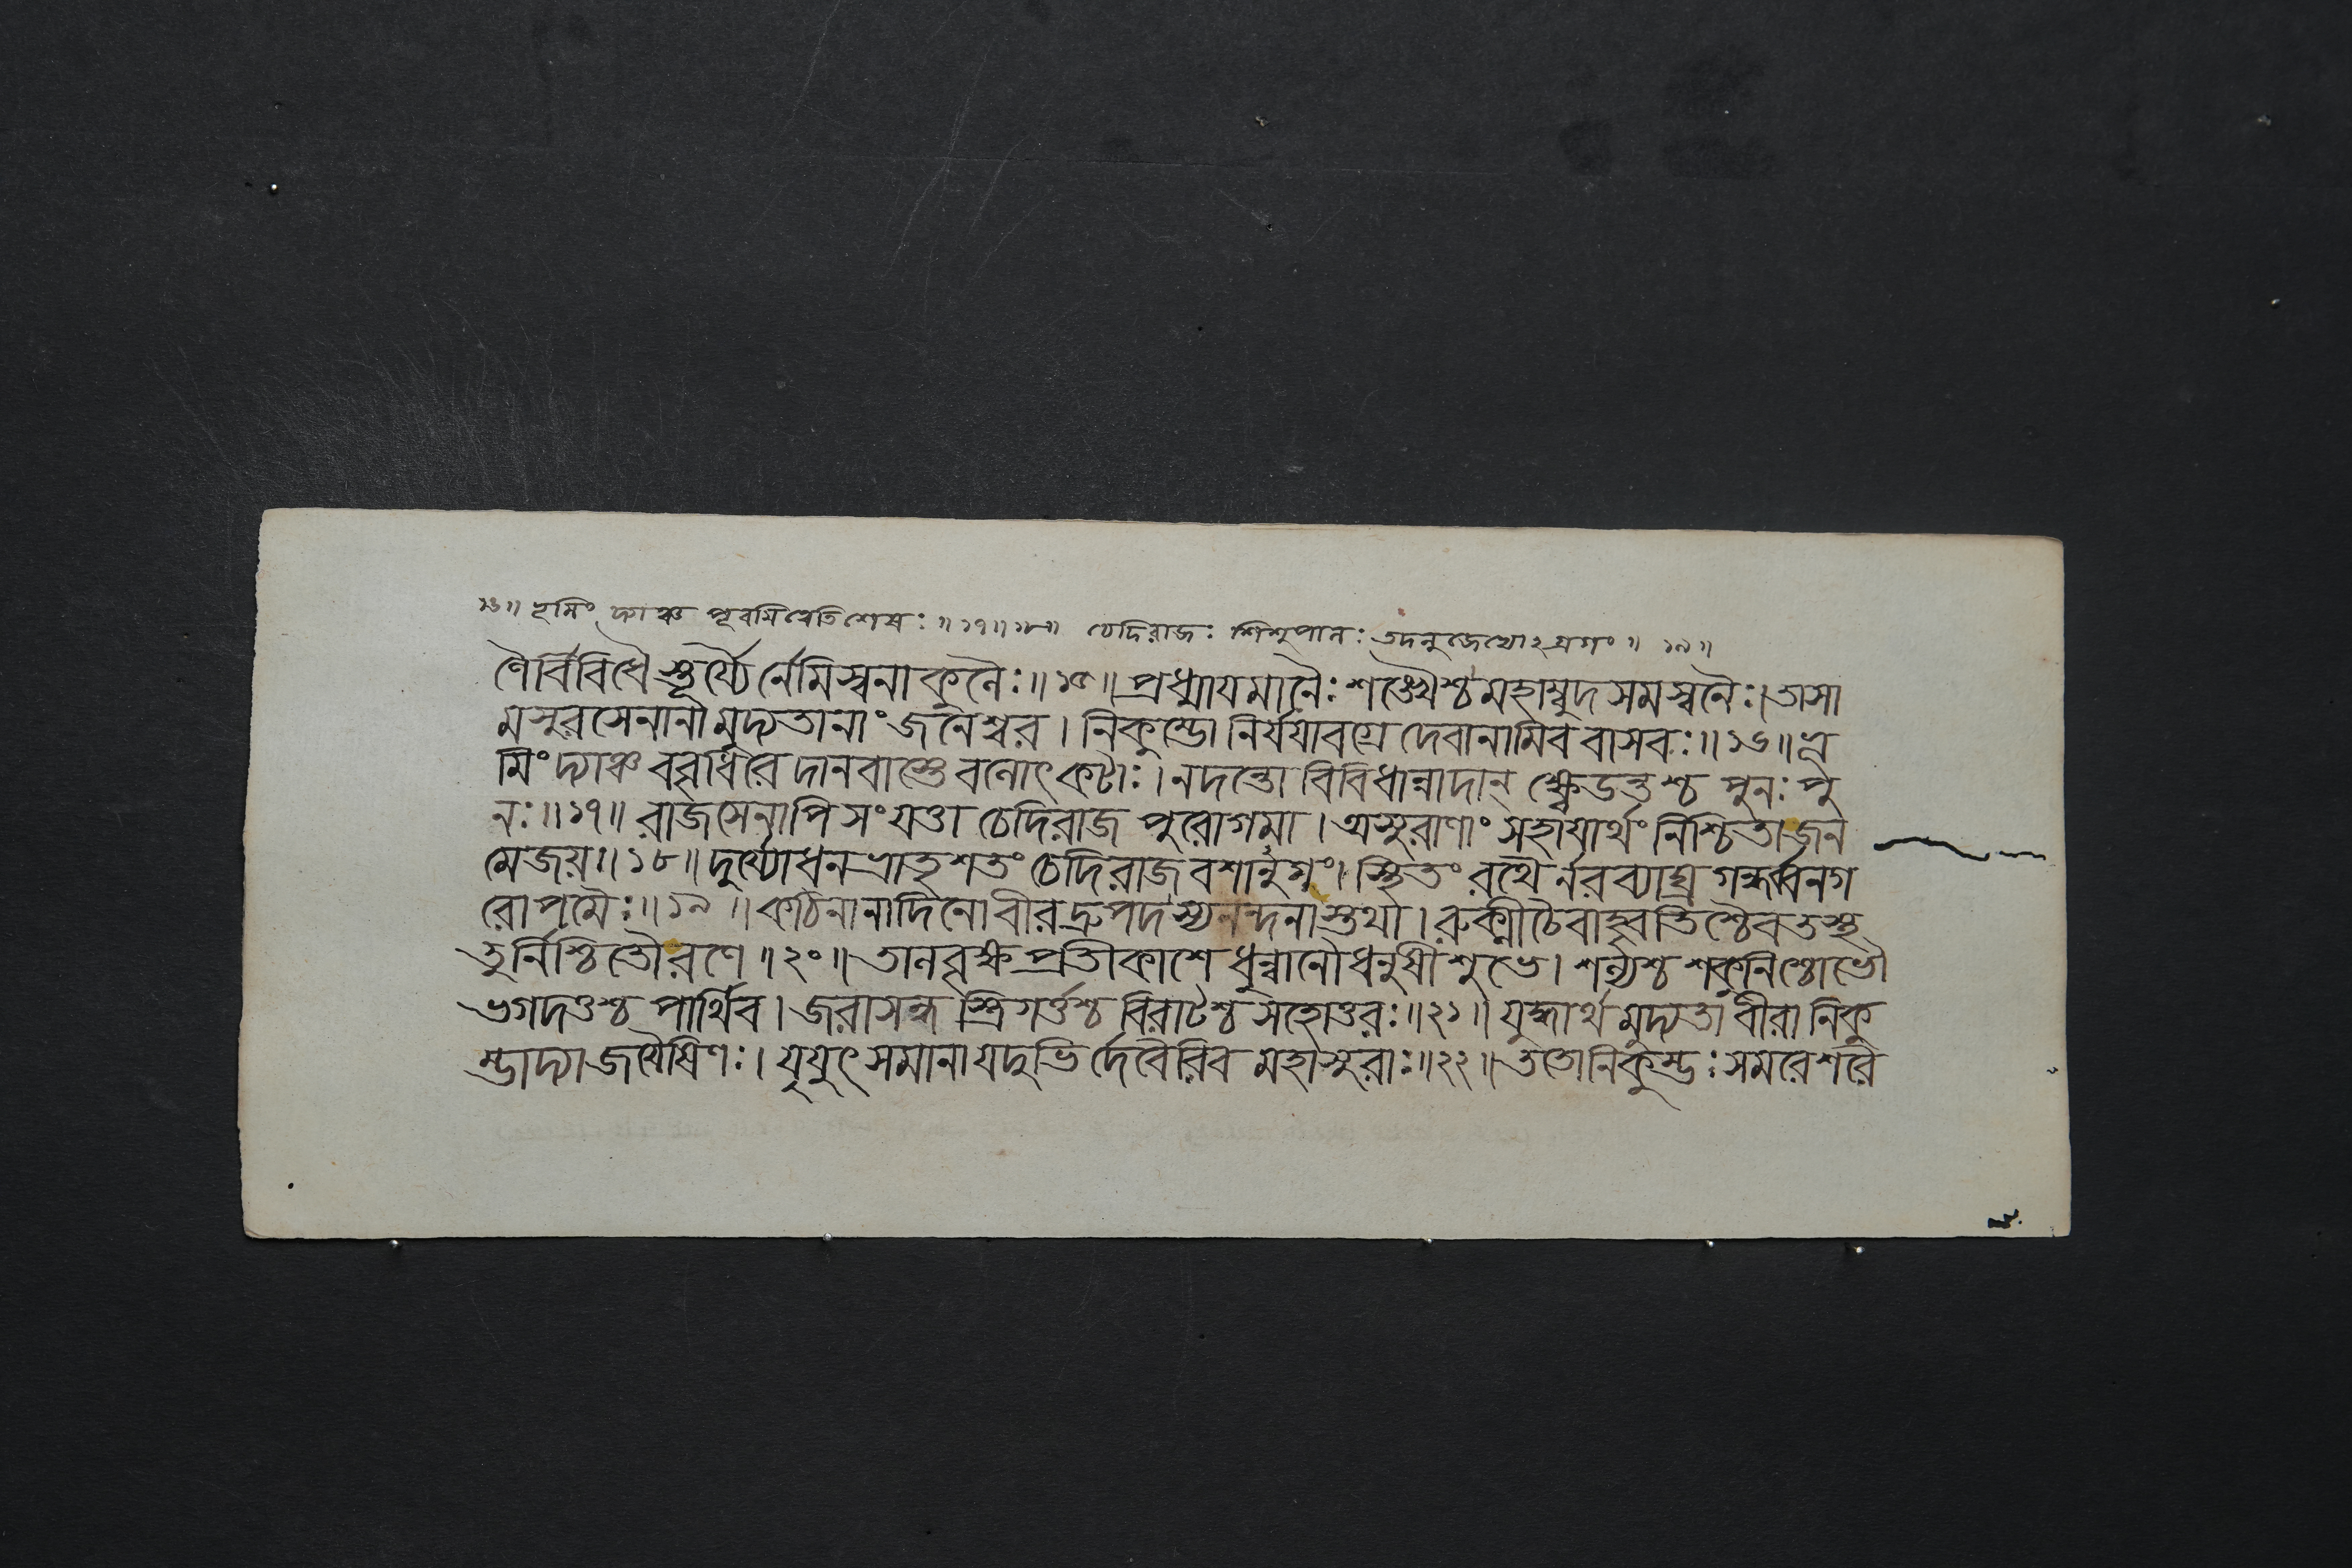 ১৬॥ ভূমিং দ্যাঞ্চ পূরয়ন্নিবেতিশেষঃ ॥ ১৭॥ ১৮॥ চেদিরাজঃ শিশুপালঃ তদনুজেখোঽগ্রগং ॥ ১৯॥
ণৈর্বিবিধৈস্তূর্য্যৈর্নেমিস্বনাকুলৈঃ॥ ১৫॥ প্রধ্মাযমানৈঃ শঙ্খৈশ্চ মহাম্বুদসমস্বনৈঃ। তাসা
মসুরসেনানামুদ্যতানাং জনেশ্বর। নিকুম্ভো নির্যযাবগ্রে দেবানামিব বাসবঃ॥ ১৬॥ ভূ
মিং দ্যাঞ্চ ববৃধিরে দানবাস্তে বলোৎকটাঃ। নদন্তো বিবিধান্নাদান্ ক্ষ্বেডন্তশ্চ পুনঃ পু
নঃ॥ ১৭॥ রাজসেনাপি সংযত্তা চেদিরাজ পুরোগমা। অসুরাণাং সহাযার্থং নিশ্চিতা জন
মেজয়ঃ॥ ১৮॥ দুর্য্যোধনভ্রাতৃশতং চেদিরাজবশানুগং। স্থিতং রথৈর্নরব্যাঘ্র গন্ধর্বনগ
রোপমৈঃ॥ ১৯॥ কঠিনানাদিনো বীর দ্রুপদস্যনন্দনাস্তথা। রুক্মীচৈবাহ্বৃতিশ্চৈব তস্থ
তুর্নিশ্চিতৌ রণে॥ ২০॥ তালবৃক্ষপ্রতীকাশে ধুন্বানৌ ধনুষী শুভে। শল্যশ্চ শকুনিশ্চোভৌ
ভগদত্তশ্চ পার্থিব। জরাসন্ধ স্ত্রিগর্ত্তশ্চ বিরাটশ্চ সহোত্তরঃ॥ ২১॥ যুদ্ধার্থমুদ্যতা বীরা নিকু
ম্ভাদ্যা জযৈষিণঃ। যুযুৎসমানা যদুভির্দেবৈরিব মহাসুরাঃ॥ ২২॥ ততো নিকুম্ভঃ সমরে শরৈ